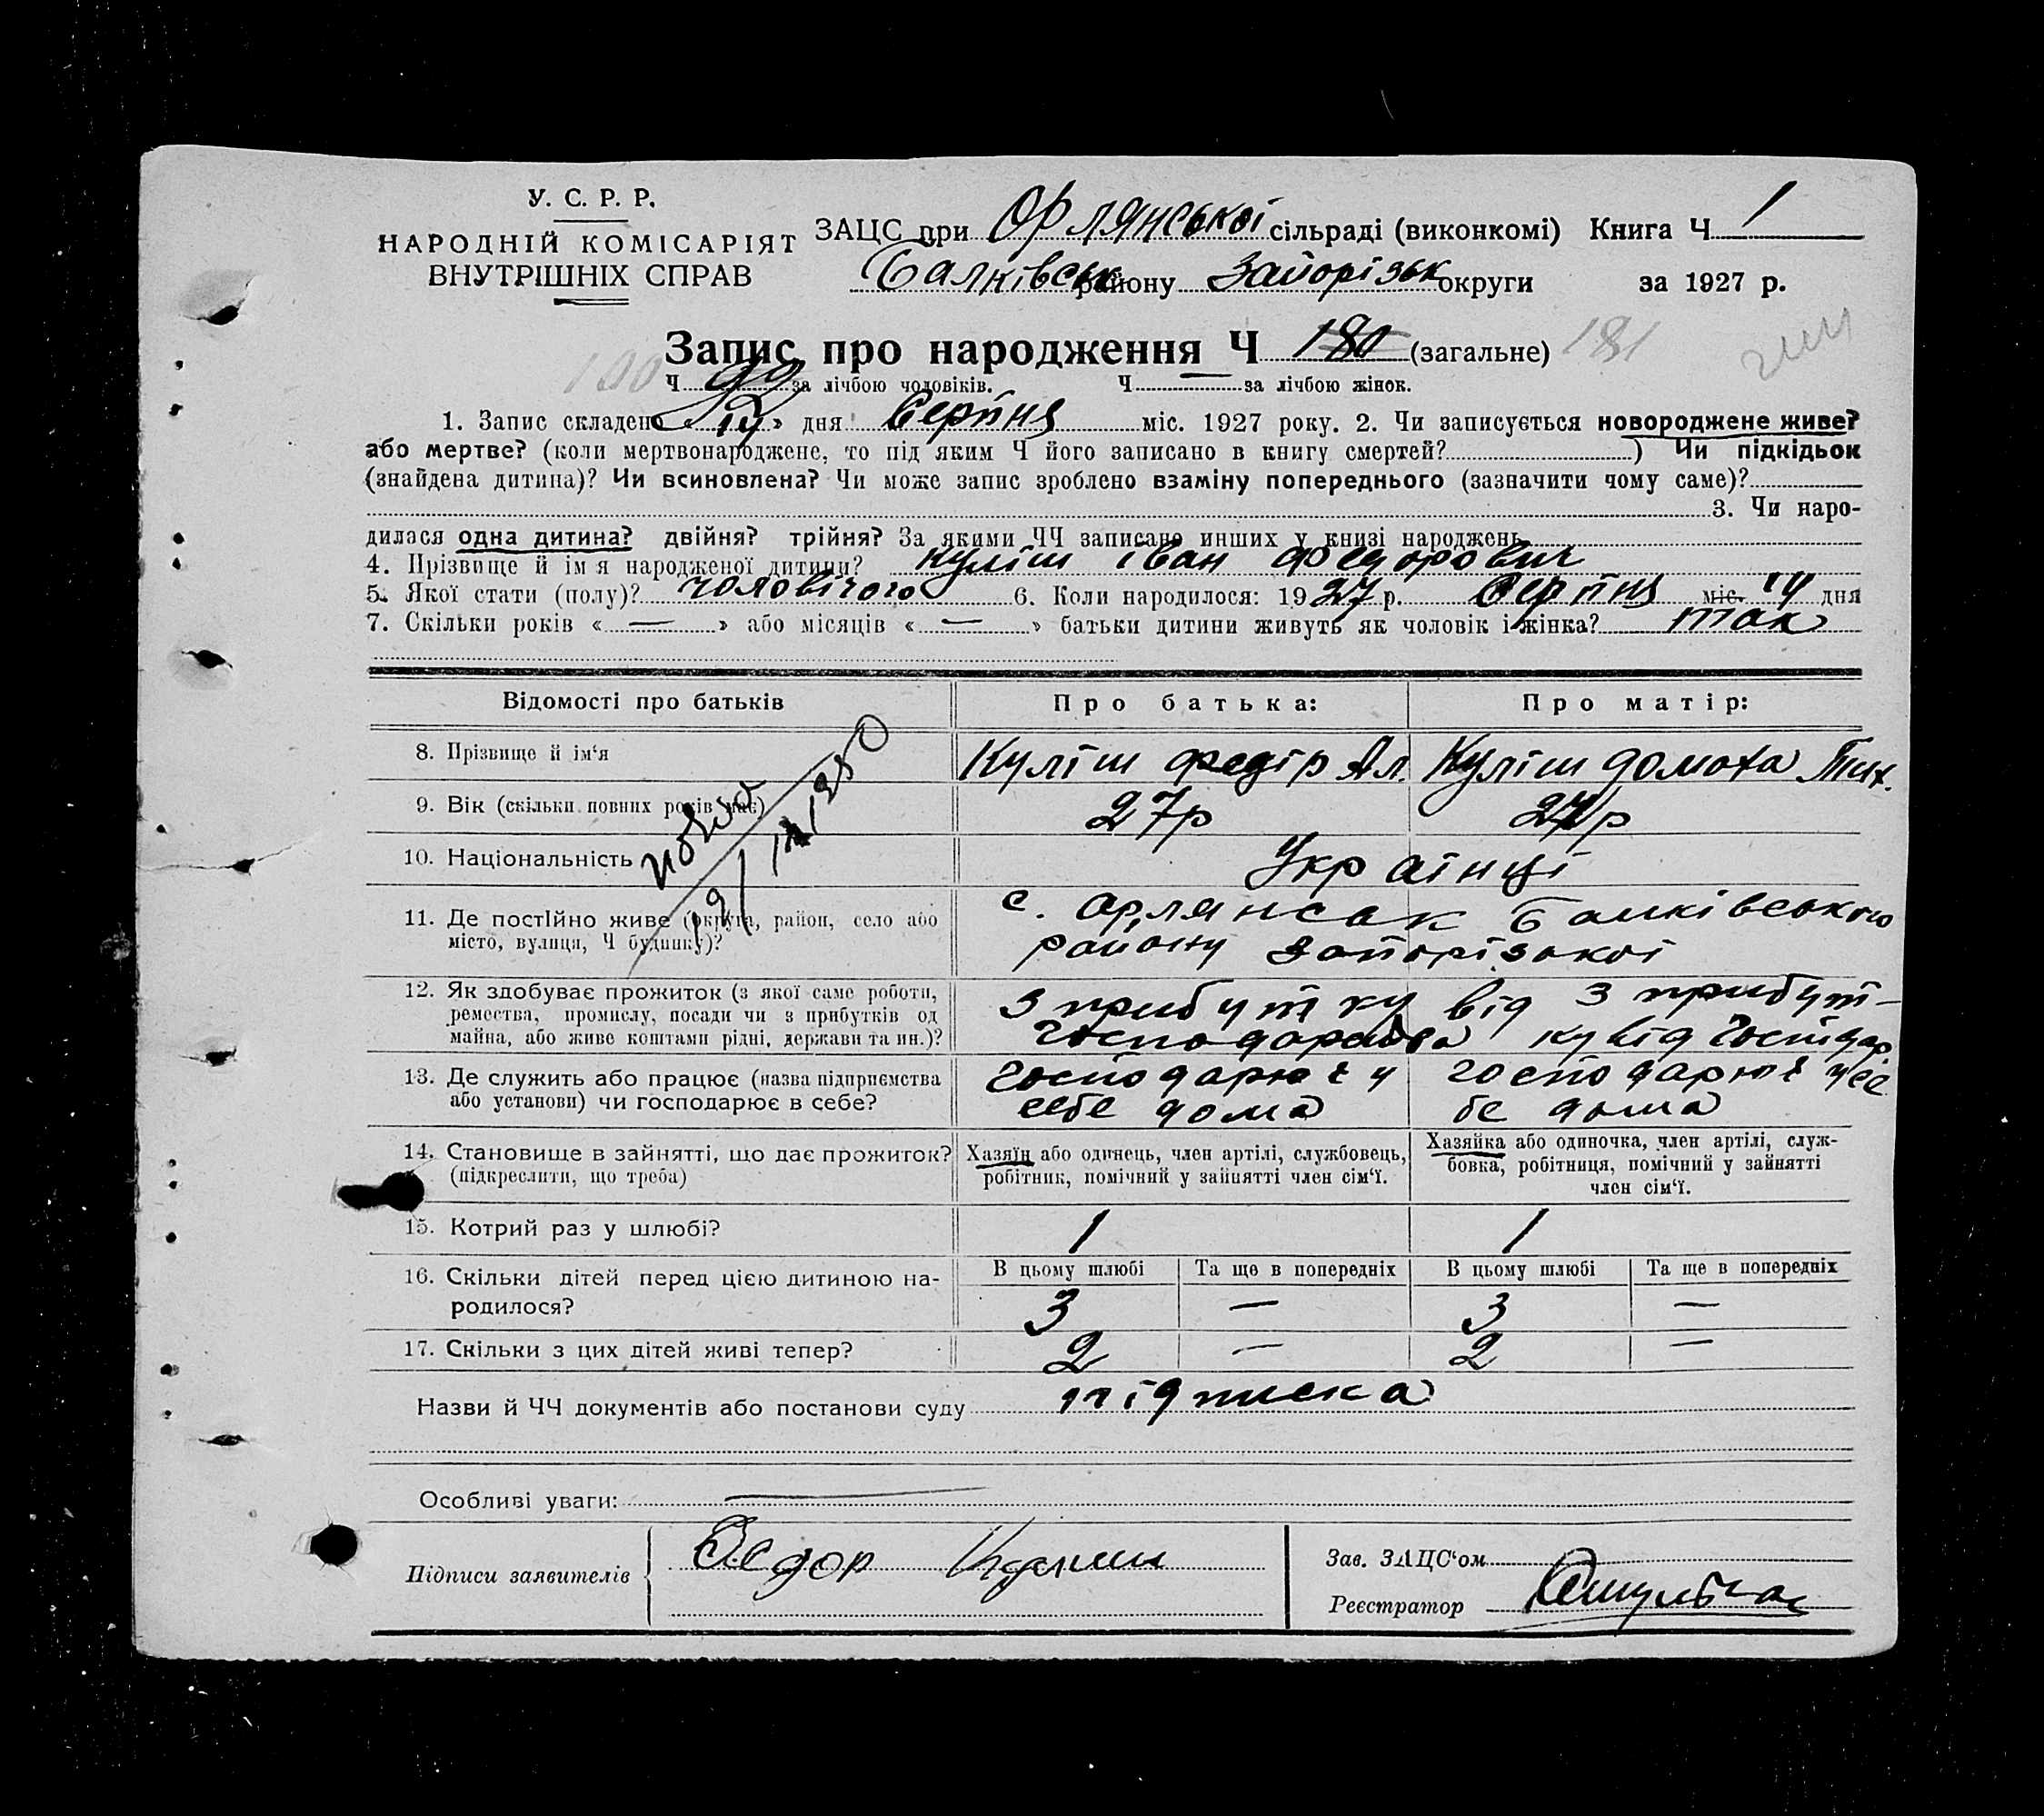 У. С. Р. Р.
НАРОДНІЙ КОМІСАРІЯТ
ВНУТРІШНІХ СПРАВ
ЗАЦС при Орлянської сільраді (виконкомі) Книга Ч 1
Балківськ району Запорізьк округи за 1927 р.
Запис про народження Ч 180 (загальне) 181
100 Ч 99 за лічбою чоловіків. Ч за лічбою жінок.
1. Запис складено « » дня Серпня міс. 1927 року. 2. Чи записується новороджене живе?
або мертве? (коли мертвонароджене, то під яким Ч його записано в книгу смертей? ) Чи підкідьок
(знайдена дитина)? Чи всиновлена? Чи може запис зроблено взаміну попереднього (зазначити чому саме)?
3. Чи наро-
дилася одна дитина? двійня? трійня? За якими ЧЧ записано инших у книзі народжень
4. Прізвище й ім'я народженої дитини? Куліш Іван Федорович
5. Якої статі (полу)? чоловічого 6. Коли народилося: 1927 р. Серпня міс. 14 дня
7. Скільки років « — » або місяців « — » батьки дитини живуть як чоловік і жінка? так
Відомості про батьків Про батька: Про матір:
8. Прізвище й ім'я Куліш Федір Ал. Куліш Домаха Тих.
9. Вік (скільки повних років має) 27р 27р
10. Національність Українці
11. Де постійно живе (округа, район, село або
місто, вулиця, Ч будинку)?
с. Орлянсак Балківського
району Запорізької
12. Як здобуває прожиток (з якої саме роботи,
ремества, промислу, посади чи з прибутків од
майна, або живе коштами рідні, держави та ин.)?
З прибутку від
господарства
З прибут-
ку від господар.
13. Де служить або працює (назва підприємства
або установи) чи господарює в себе?
господарює у
себе дома
господарює у се
бе дома
14. Становище в зайнятті, що дає прожиток?
(підкреслити, що треба)
Хазяїн або одинець, член артілі, службовець,
робітник, помічний у зайнятті член сім'ї.
Хазяйка або одиночка, член артілі, служ-
бовка, робітниця, помічний у зайнятті
член сім'ї.
15. Котрий раз у шлюбі? 1 1
16. Скільки дітей перед цією дитиною на-
родилося?
В цьому шлюбі Та ще в попередніх В цьому шлюбі Та ще в попередніх
3 — 3 —
17. Скільки з цих дітей живі тепер? 2 — 2 —
Назви й ЧЧ документів або постанови суду підписка
Особливі уваги: —
Підписи заявителів Федор
Зав. ЗАЦС'ом
Реєстратор